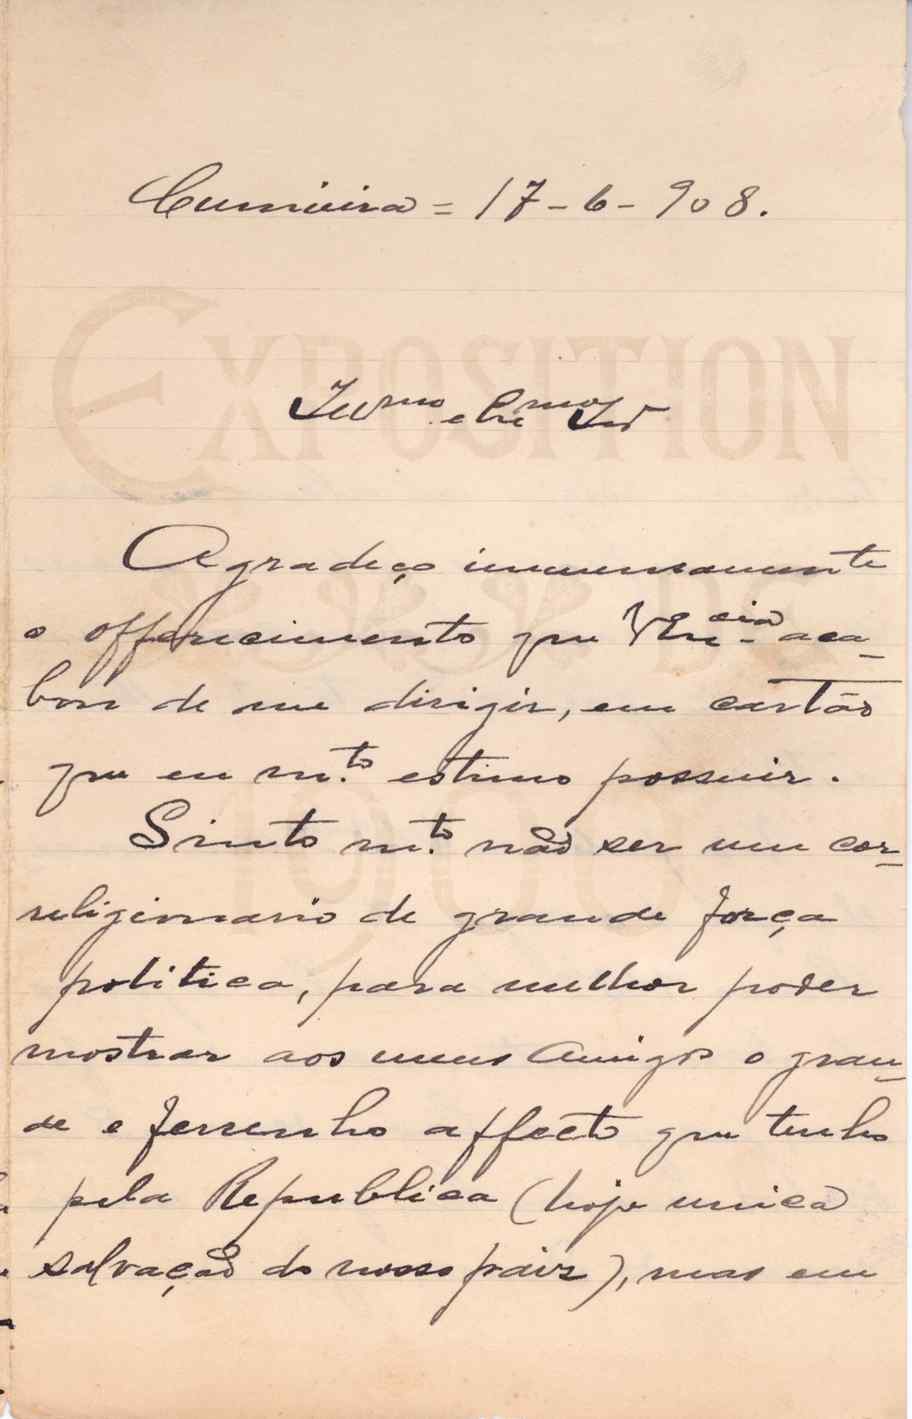 Cumieira = 17-6-908.
EXPOSITION
Illmo e Exmo Snr
Agradeço immensamente
o offerecimento que VExcia aca-
bou de me dirigir, em cartão
que eu m.to estimo possuir.
1900
Sinto m.to não ser um cor-
religionario de grande força
politica, para melhor poder
mostrar aos meus Amigos o gran-
de e ferrenho affecto que tenho
pela Republica (hoje unica
salvação do nosso paiz), mas em